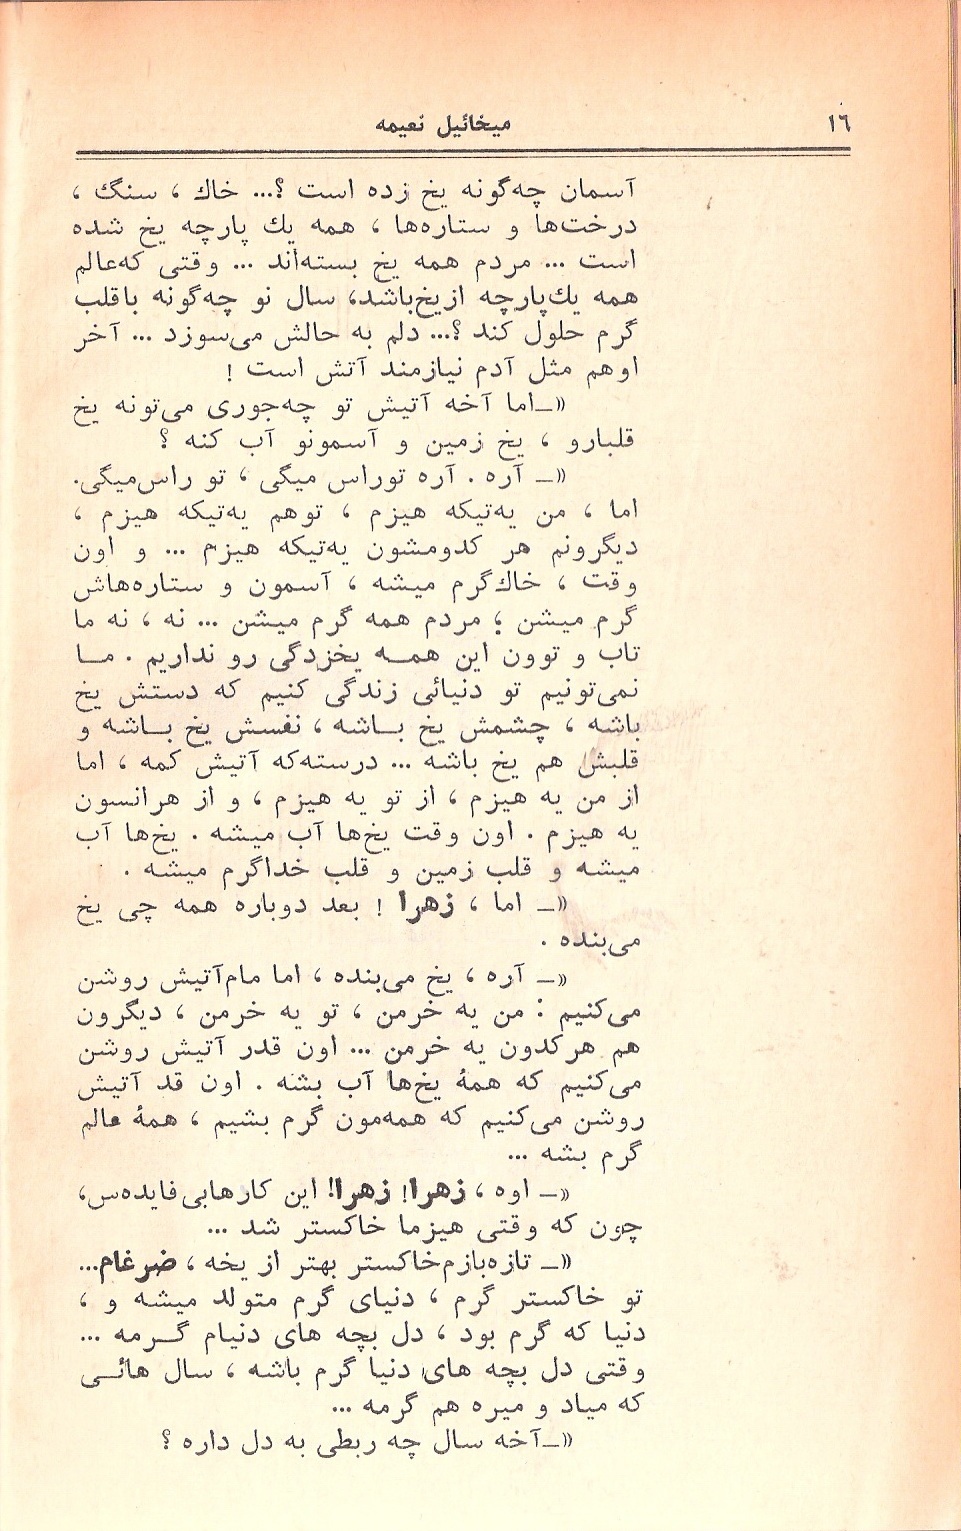 ۱٦
میخائیل نعیمه
آسمان چه‌گونه یخ زده است ؟... خاك ، سنگ ،
درخت‌ها و ستاره‌ها ، همه یك پارچه یخ شده
است ... مردم همه یخ بسته‌اند ... وقتی که‌عالم
همه یك‌پارچه ازیخ‌باشد، سال نو چه‌گونه باقلب
گرم حلول کند ؟... دلم به حالش می‌سوزد ... آخر
اوهم مثل آدم نیازمند آتش است !
«ـ اما آخه آتیش تو چه‌جوری می‌تونه یخ
قلبارو ، یخ زمین و آسمونو آب کنه ؟
«ـ آره . آره توراس میگی ، تو راس‌میگی.
اما ، من یه‌تیکه هیزم ، توهم یه‌تیکه هیزم ،
دیگرونم هر کدومشون یه‌تیکه هیزم ... و اون
وقت ، خاك‌گرم میشه ، آسمون و ستاره‌هاش
گرم میشن ؛ مردم همه گرم میشن ... نه ، نه ما
تاب و توون این همـه یخزدگی رو نداریم . مـا
نمی‌تونیم تو دنیائی زندگی کنیم که دستش یخ
باشه ، چشمش یخ بـاشه ، نفسش یخ بـاشه و
قلبش هم یخ باشه ... درسته‌که آتیش کمه ، اما
از من یه هیزم ، از تو یه هیزم ، و از هرانسون
یه هیزم . اون وقت یخ‌ها آب میشه . یخ‌ها آب
میشه و قلب زمین و قلب خداگرم میشه .
«ـ اما ، زهرا ! بعد دوباره همه چی یخ
می‌بنده .
«ـ آره ، یخ می‌بنده ، اما مام‌آتیش روشن
می‌کنیم : من یه خرمن ، تو یه خرمن ، دیگرون
هم هرکدون یه خرمن ... اون قدر آتیش روشن
می‌کنیم که همهٔ یخ‌ها آب بشه . اون قد آتیش
روشن می‌کنیم که همه‌مون گرم بشیم ، همهٔ عالم
گرم بشه ...
«ـ اوه ، زهرا! زهرا! این کارهابی‌فایده‌س،
چون که وقتی هیزما خاکستر شد ...
«ـ تازه‌بازم‌خاکستر بهتر از یخه ، ضرغام...
تو خاکستر گرم ، دنیای گرم متولد میشه و ،
دنیا که گرم بود ، دل بچه های دنیام گـرمه ...
وقتی دل بچه های دنیا گرم باشه ، سال هائـی
که میاد و میره هم گرمه ...
«ـ آخه سال چه ربطی به دل داره ؟